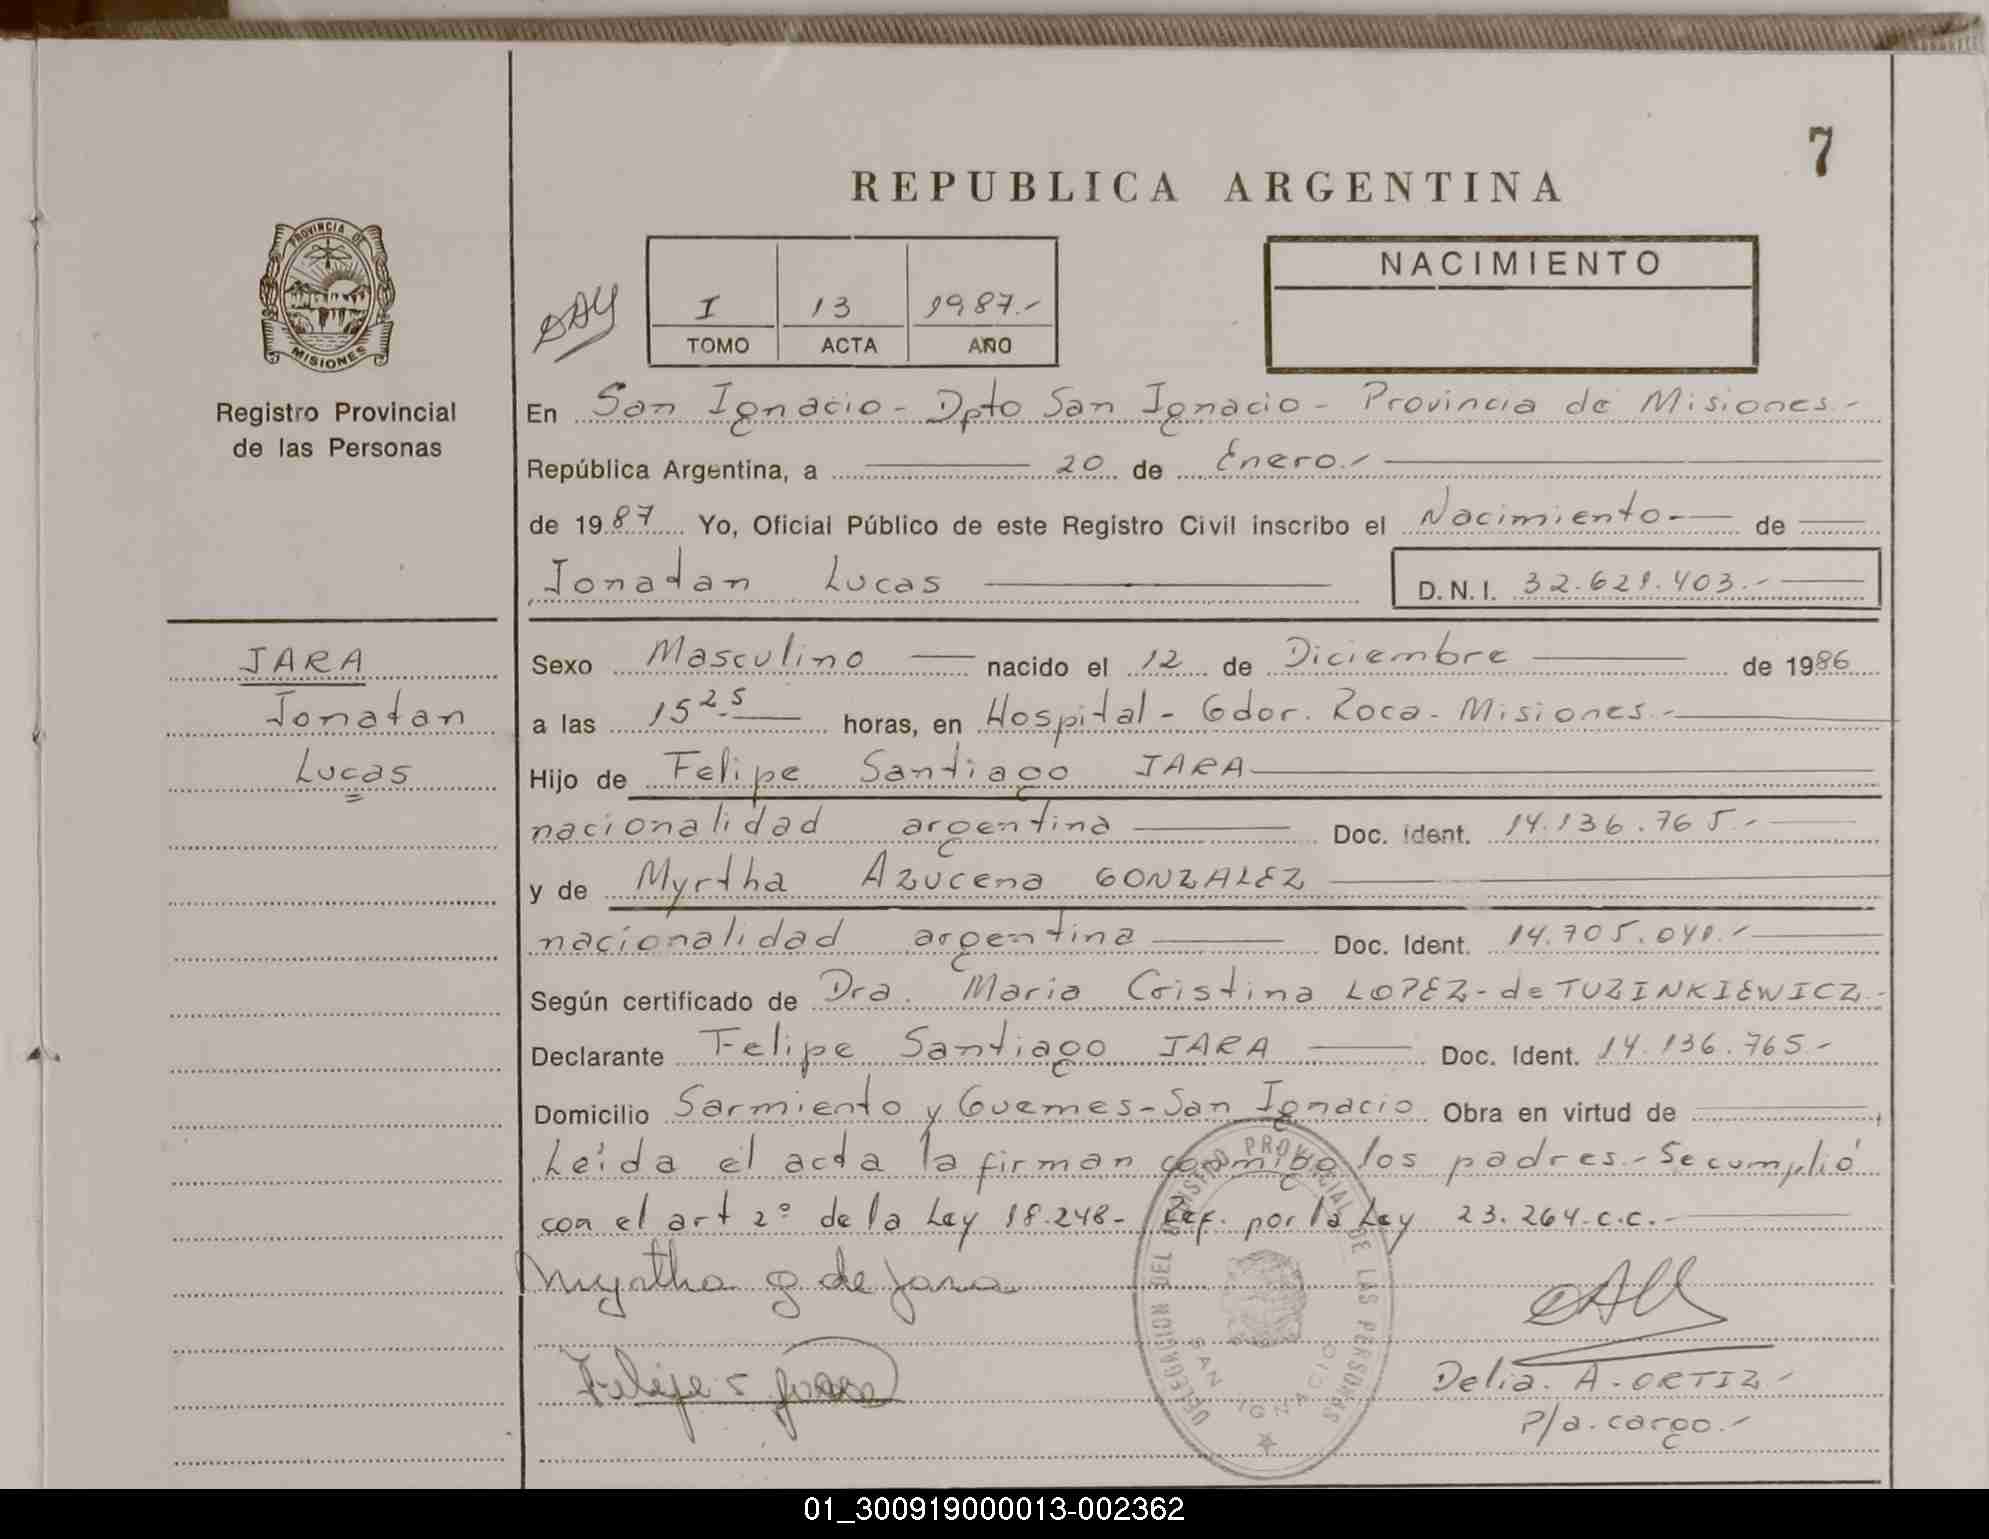 7
REPUBLICA ARGENTINA
PROVINCIA DE
MISIONES
Registro Provincial
de las Personas
I 13 1987.-
TOMO ACTA AÑO
NACIMIENTO
En San Ignacio - Dpto San Ignacio - Provincia de Misiones.-
República Argentina, a 20 de Enero.-
de 1987 Yo, Oficial Público de este Registro Civil inscribo el Nacimiento.- de
Jonatan Lucas D.N.I. 32.621.403.-
JARA
Jonatan
Lucas
Sexo Masculino nacido el 12 de Diciembre de 1986
a las 15 25 horas, en Hospital - Gdor. Roca - Misiones.-
Hijo de Felipe Santiago JARA
nacionalidad argentina Doc. Ident. 14.136.765.-
y de Myrtha Azucena GONZALEZ
nacionalidad argentina Doc. Ident. 14.705.041.-
Según certificado de Dra. Maria Cristina LOPEZ - de TUZINKIEWICZ.-
Declarante Felipe Santiago JARA Doc. Ident. 14.136.765.-
Domicilio Sarmiento y Guemes - San Ignacio Obra en virtud de
Leída el acta la firman conmigo los padres.- Se cumplió
con el art 2º de la Ley 18.248 - Ref. por la Ley 23.264.c.c.-
Myrtha G de Jara
Felipe S Jara
DELEGACION DEL REGISTRO PROVINCIAL DE LAS PERSONAS
SAN IGNACIO
Delia. A. ORTIZ -
P/a. cargo.-
01_300919000013-002362